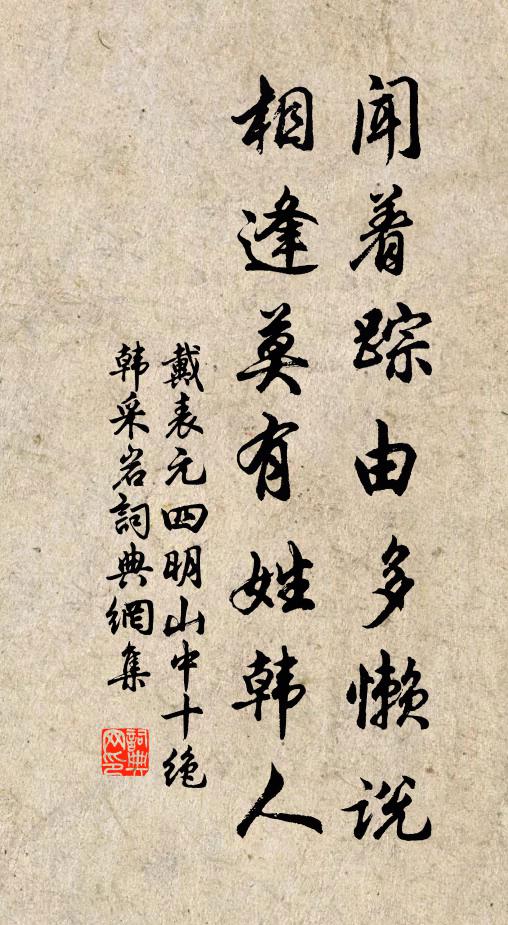 闻着踪由多懒说
相逢莫有姓韩人
戴表元四明山中十绝
韩采岩詞典網集
詞典网印